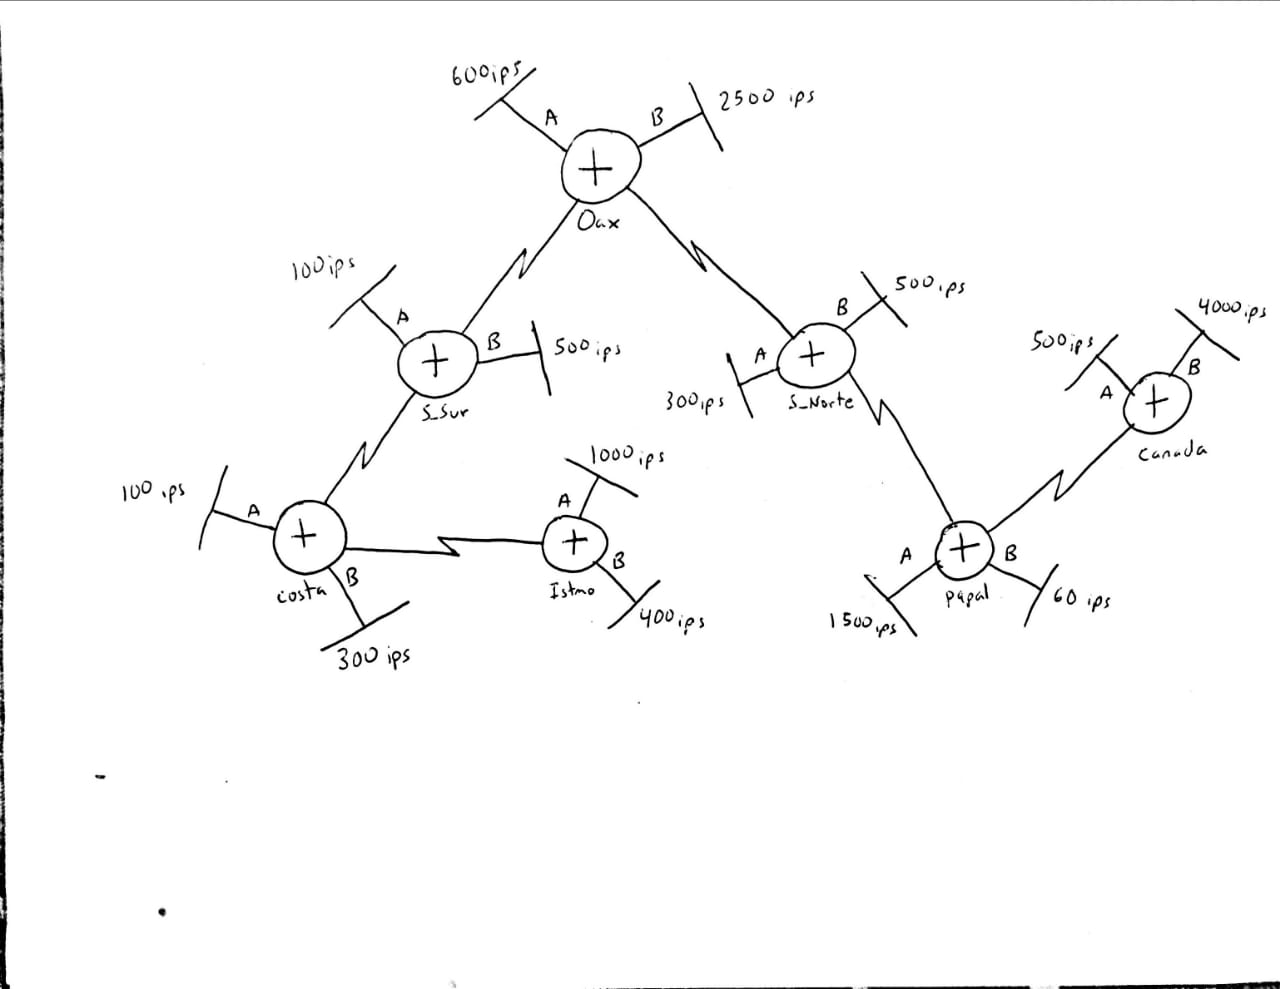 600ips
A
B
2500 ips
Oax
100ips
A
B
500ips
S_Sur
B
500ips
A
300ips
S_Norte
4000ips
500ips
B
A
Canada
100 ips
A
B
costa
300 ips
1000ips
A
B
Istmo
400ips
A
B
Papal
1500ips
60 ips